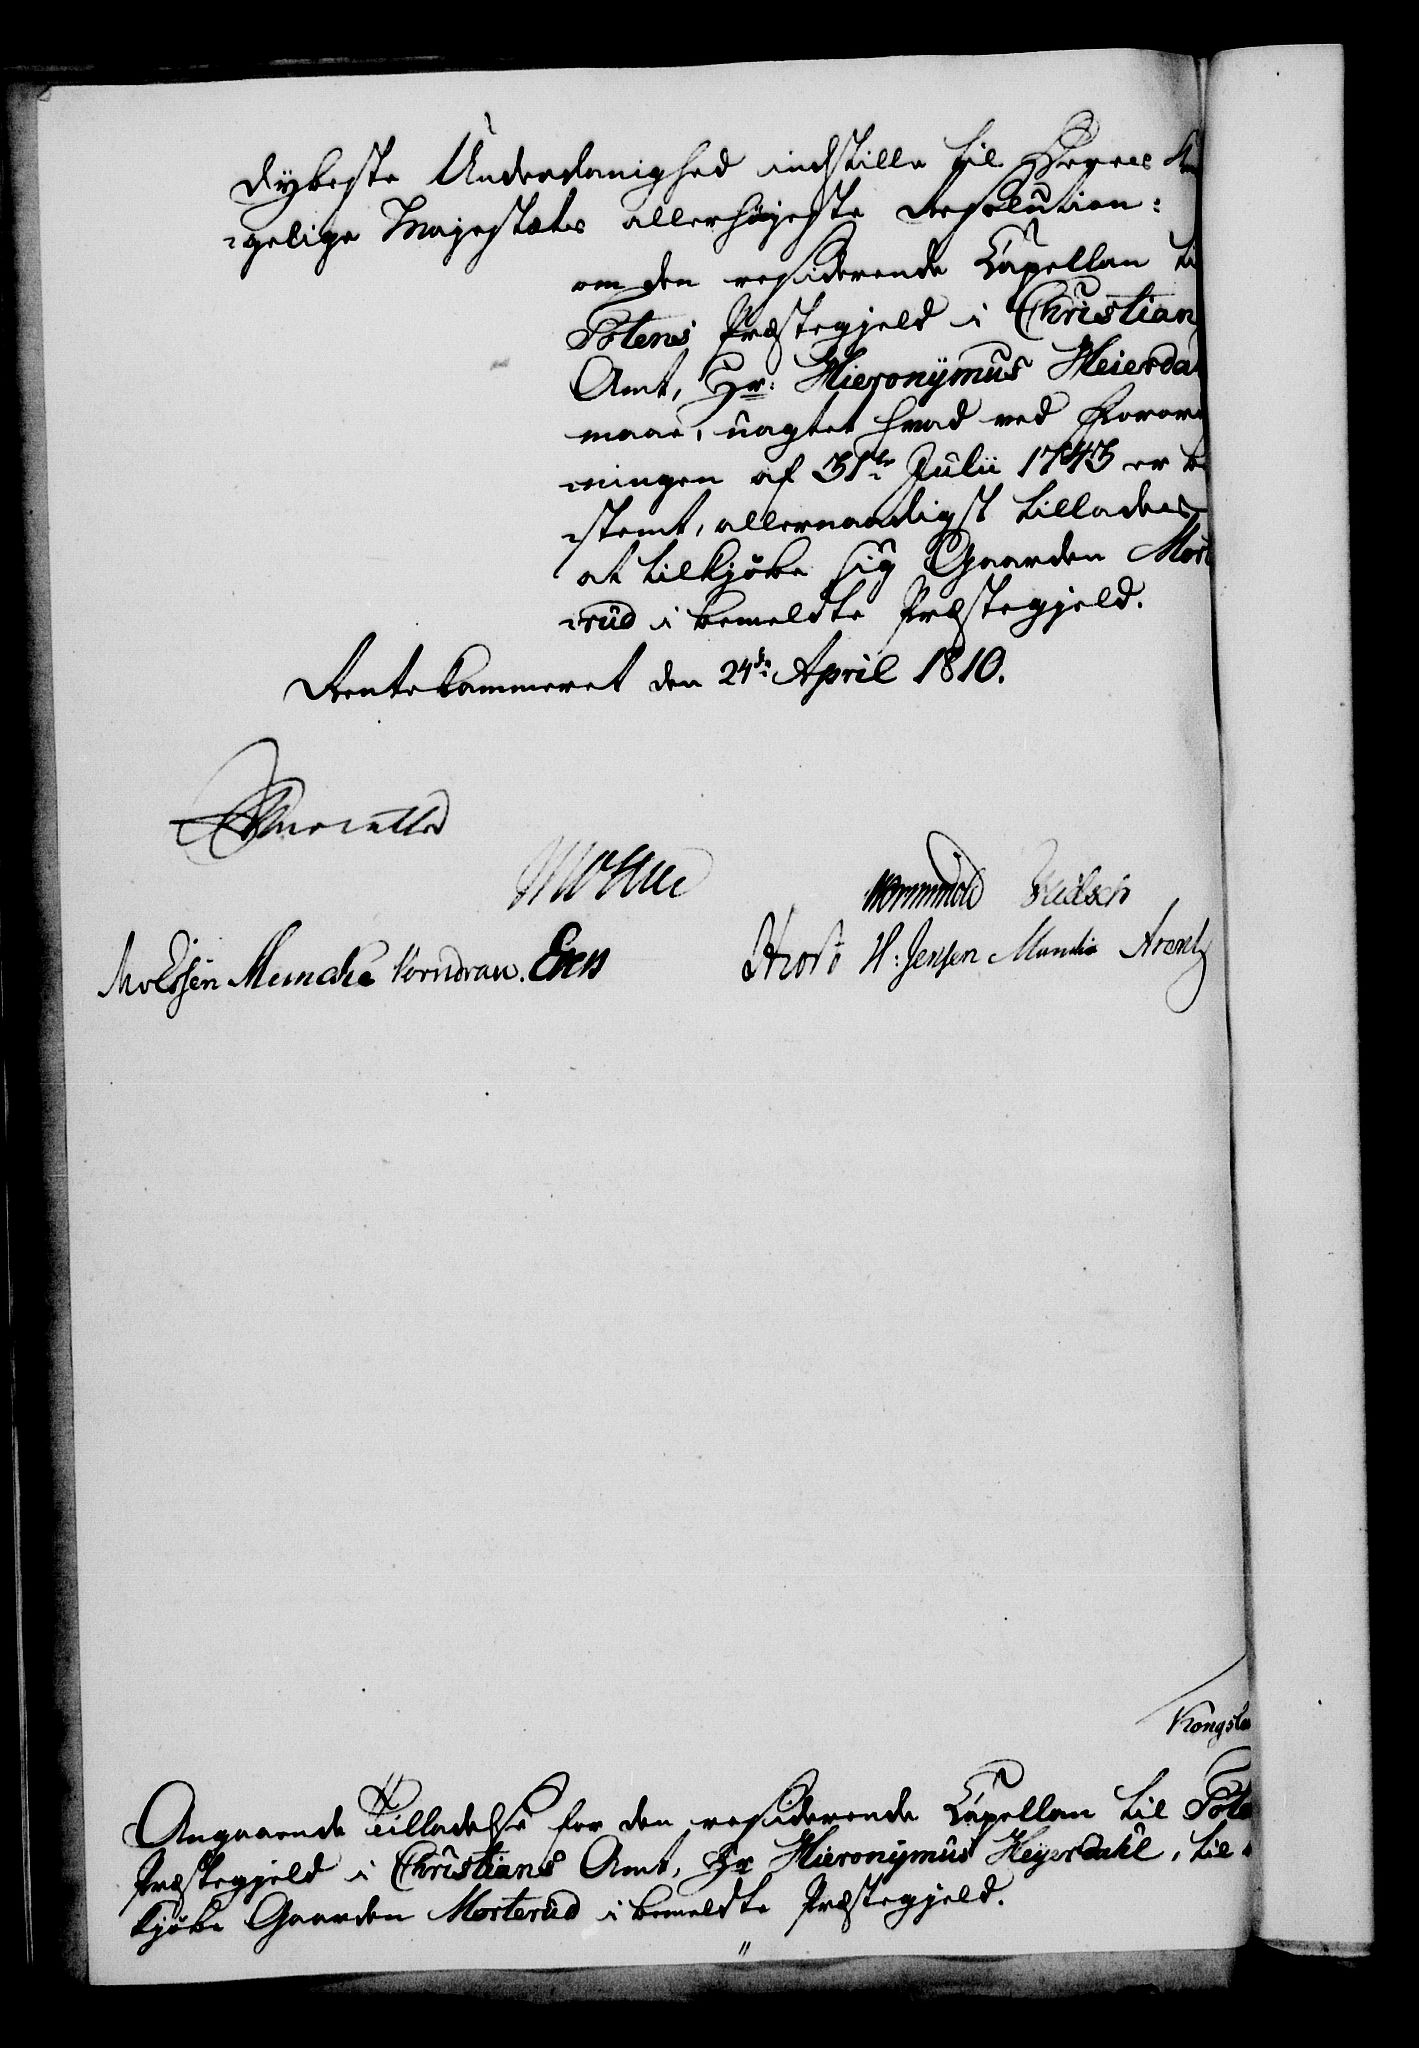 dybeste Underdanighed indstille til Deres
gelige Majestæts allerhöjeste Resolution:
om den residerende Capellan ti
Totens Præstegjeld i Christian
Amt, Hr: Hieronÿmus Heierda
maae, uagtet hvad ved Forord
ningen af 31te Julii 1743 er be
stemt, allernaadigst tillades
at tilkjöbe sig Gaarden Mort
rud i bemeldte Præstegjeld.
Rentekammeret den 24de April 1810.
Wormskiold
Hrosö H: Jensen Arentz
Moldsen Munche Vorndran. Even
Kongsb
Angaaende Tilladelse for den residerende Capellan til Tote
Præstegjeld i Christians Amt, Hr Hieronymus Heyerdahl, til
kjöbe Gaarden Morterud i bemeldte Præstegjeld.